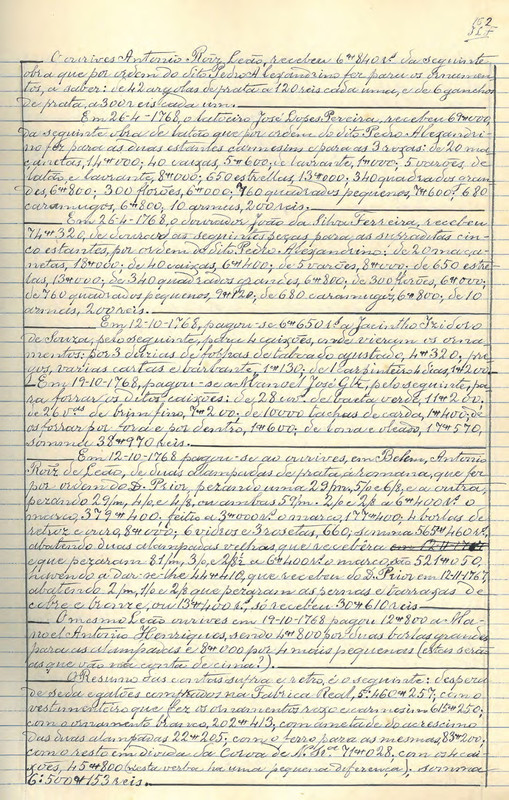 O ourives Antonio Roiz Leão, recebeu 6#840 rs. da seguinte
obra que por ordem do dito Pedro Alexandrino fez para os ornamen-
tos, a saber: de 42 argolas de prata a 120 reis cada uma, e de 6 ganchos
de prata, a 300 reis cada um.
Em 26-4-1768, o latoeiro José Lopes Pereira, recebeu 69#000,
da seguinte obra de latão que por ordem do dito Pedro Alexandri-
no fez para as duas estantes carmesins e para as 3 roxas: de 20 ma-
çanetas, 14#000; 40 vaixas, 5#600; de laurante, 1#000; 5 varões de
latão, e laurante, 8#000; 650 estrellas, 13#000; 340 quadrados gran-
des, 6#800; 300 florões, 6#000; 760 quadrados pequenos, 7#600; 680
caramugos, 6#800; 10 armeis, 200 reis.
Em 26-4-1768, o dourador João da Silva Ferreira, recebeu
74#320, de dourar as seguintes peças para as sobraditas cin-
co estantes, por ordem do dito Pedro Alexandrino: de 20 maça-
netas, 18#000; de 40 vaixas, 6#400; de 5 varões, 8#000; de 650 estre-
las, 13#000; de 340 quadrados grandes, 6#800; de 300 florões, 6#000;
de 760 quadrados pequenos, 9#120; de 680 caramugos, 6#800; de 10
armeis, 200 reis.
Em 12-10-1768, pagou-se 6#650 rs. a Jacintho Izidoro
de Souza, pelo seguinte, para 4 caixões, onde vieram os orna-
mentos: por 3 duzias de de taboado ajustado, 4#320; pre-
gos, varias cartas e barbante, 1#130; de 1 carpinteiro 4 dias, 1#200
Em 19-10-1768, pagou-se a Manoel José Glz, pelo seguinte, pa-
ra forrar os ditos caixões: de 28 de baeta verde, 11#200;
de 260 de brim fino, 7#200; de 10000 tachas de carda, 1#400; de
os forrar por fora e por dentro, 1#600; de lona e oleado, 17#570,
somma 38#970 reis.
Em 12-10-1768 pagou-se ao ourives, em Belem, Antonio
Roiz de Leão, de duas alampadas de prata, á romana, que fez
por ordem do D. Prior, pezando uma 29m, 5º e 6/8, e a outra,
pezando 29m, 4º e 4/8, ou ambas 59m. 2º e 2/8 a 6#400 rs. o
marco, 379#400. feitio a 3#000 rs. o marco, 177#400; 4 borlas de
retroz e ouro, 8#000; 6 vidros e 3 rosetas, 660, somma 565#460 rs.,
abatendo duas alampadas velhas, que recebera em 12-11-1767
e que pezaram 81m, 3º, e 2/8 a 6#400 rs. o marco, são 521#050,
havendo a dar-se-lhe 44#410, que recebeu do D. Prior em 12-11-1767,
abatendo 2m, 1º e 2/8 que pezaram as pernas e tarraxas, de
cobre e bronze, ou 13#400 rs., só recebeu 30#610 reis
O mesmo Leão ourives em 19-10-1768 pagou 12#800 a Ma-
noel Antonio Henriques, sendo 4#800 por duas borlas grandes
para as alampadas e 8#000 por 4 mais pequenas (estas serão
as que vão na conta de cima?).
O Resumo das contas supra e retro, é o seguinte: despeza
de seda e galões comprados na Fabrica Real, 5:460#257; com o
vestimenteiro que fez os ornamentos roxo e carmesim 615#250;
com o ornamento branco, 202#413; com ametade do acrescimo
das duas alampadas 22#205; com o ferro para as mesmas, 83#200;
com o resto em divida da Coroa de 71#028, com os 4 cai-
xões, 45#800 (nesta verba ha uma pequena diferença), somma
6:500#153 reis.